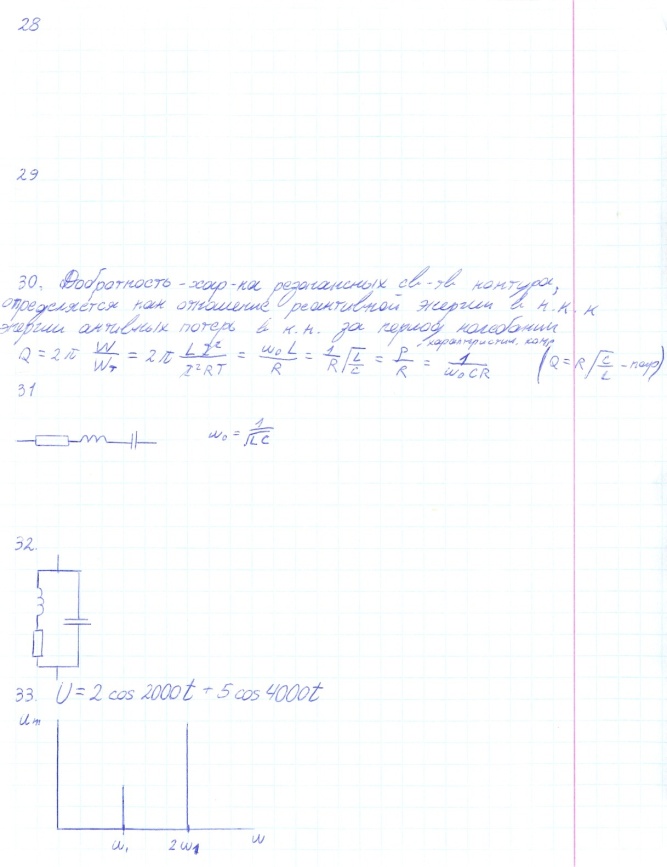 28
29
30. Добротность - хар-ка резонансных св-тв контура,
определяется как отношение реактивной энергии в к.к. к
энергии активных потерь в к.к. за период колебаний
Q = 2π W/Wт = 2π LI²/I²RT = ω₀L/R = 1/R √(L/C) = ρ/R = 1/ω₀CR (Q = R√(C/L) - пар)
31
ω₀ = 1/√LC
32.
33. U = 2 cos 2000t + 5 cos 4000t
Um
ω₁ 2ω₁ ω